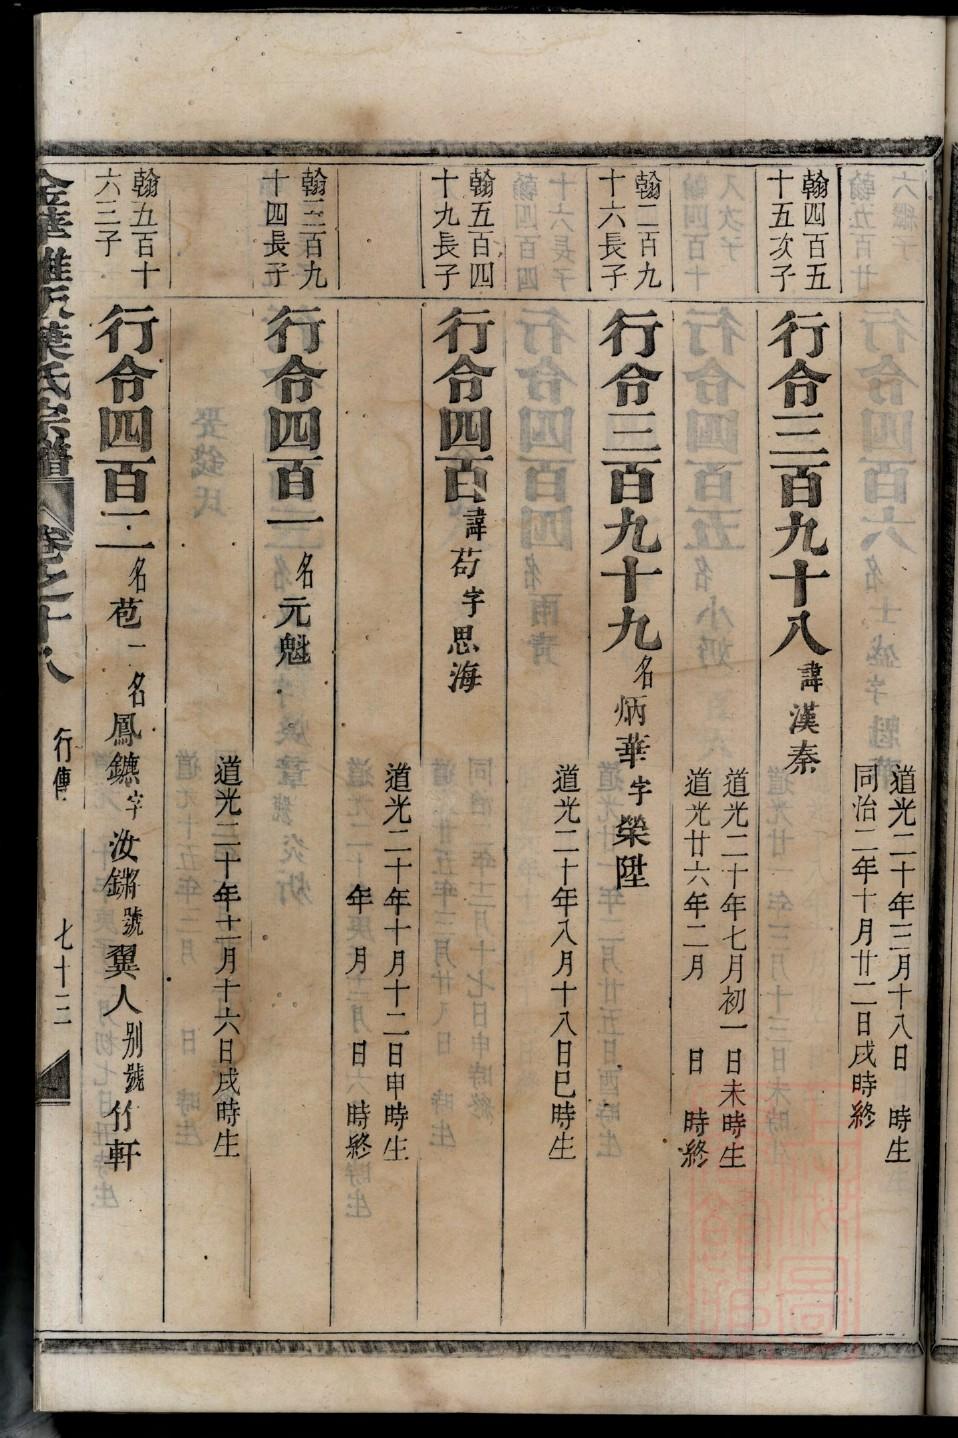 翰四百五
十五次子
行令三百九十八
諱漢秦
道光二十年三月十八日　時生
同治二年十月廿二日戌時終
翰二百九
十六長子
行令三百九十九
名炳華字榮陞
道光二十年七月初一日未時生
道光廿六年二月　日　時終
翰五百四
十九長子
行令四百
諱苟字思海
道光二十年八月十八日巳時生
翰三百九
十四長子
行令四百一
名元魁
道光二十年十月十二日申時生
年　月　日　時終
翰五百十
六三子
行令四百二
名苞一名鳳鑣字汝鏘號翼人别號竹軒
道光二十年十一月十六日戌時生
葉氏宗譜
卷之十八
行傳
七十三